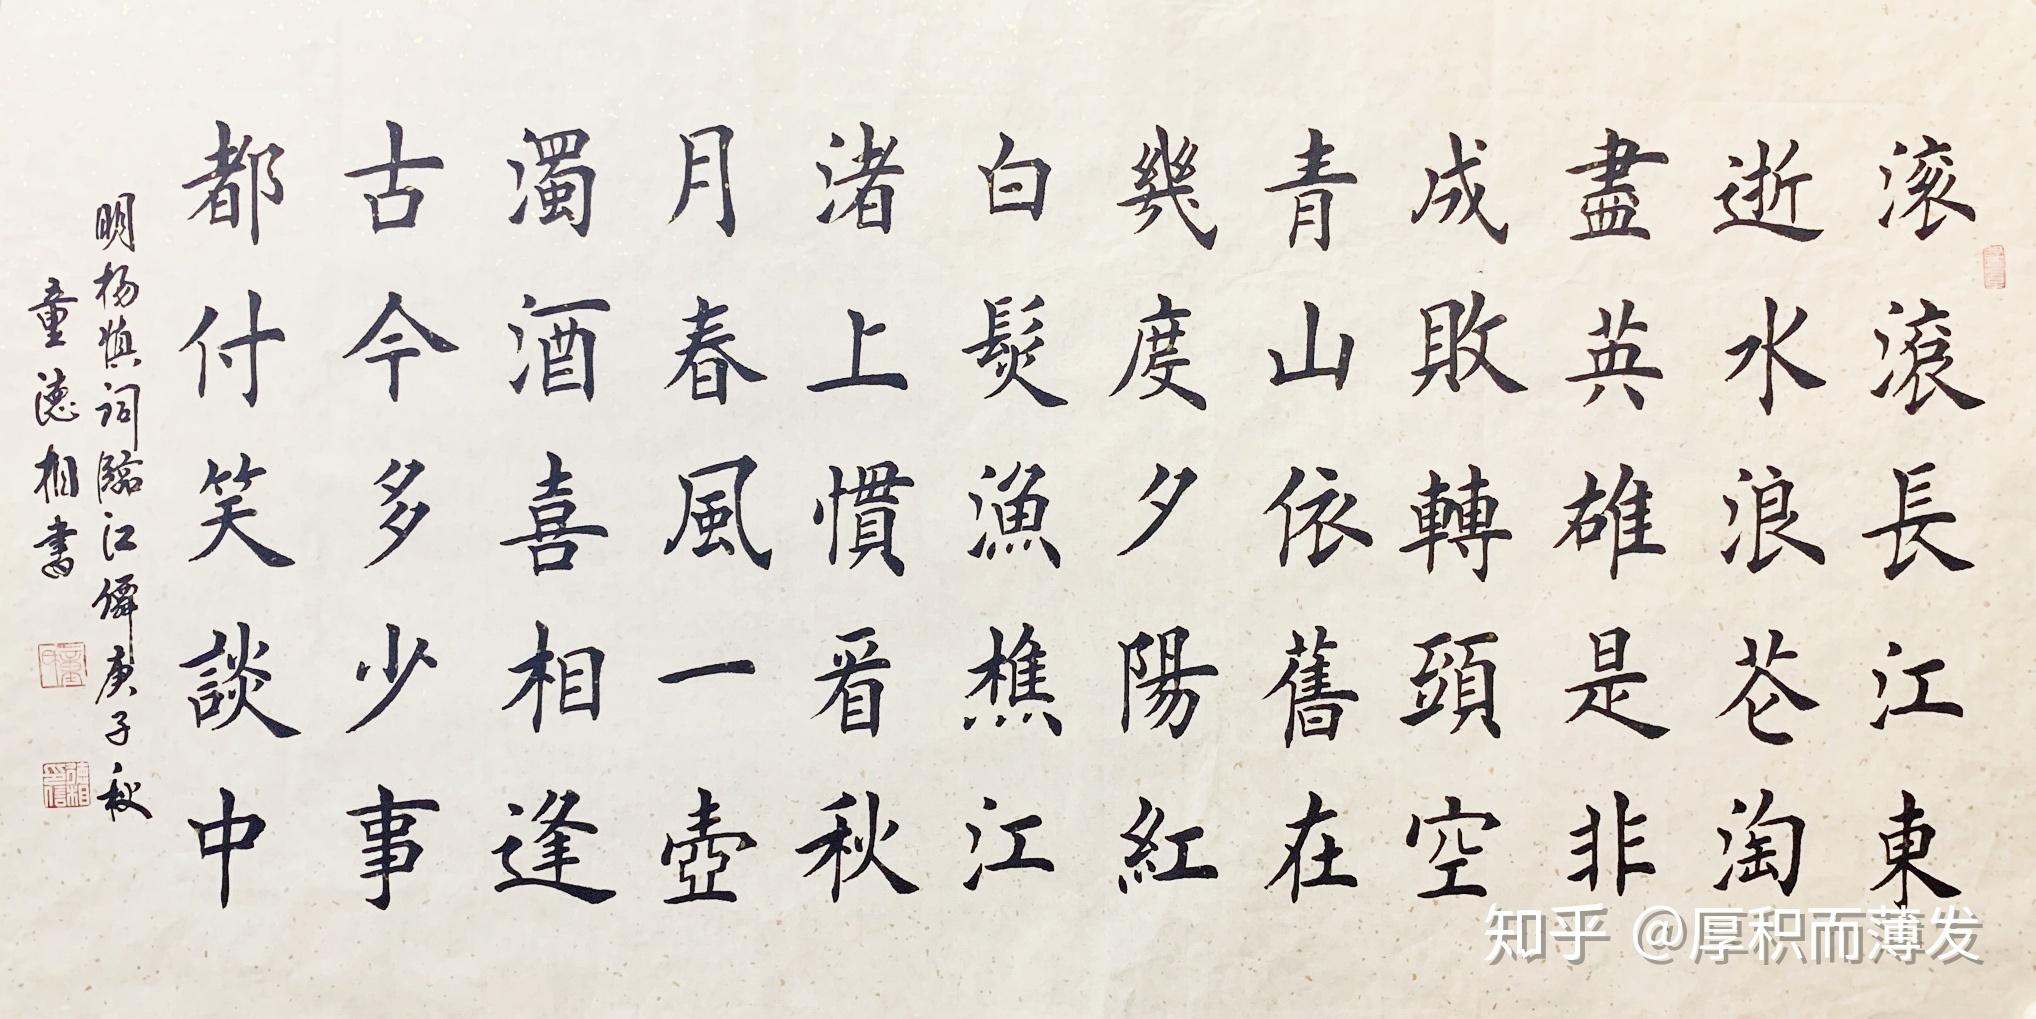 滚滾長江東
逝水浪花淘
盡英雄是非
成敗轉頭空
青山依舊在
幾度夕陽紅
白髮漁樵江
渚上慣看秋
月春風一壺
濁酒喜相逢
古今多少事
都付笑談中
明杨慎词臨江僊庚子秋
童德相書
知乎 @厚积而薄发